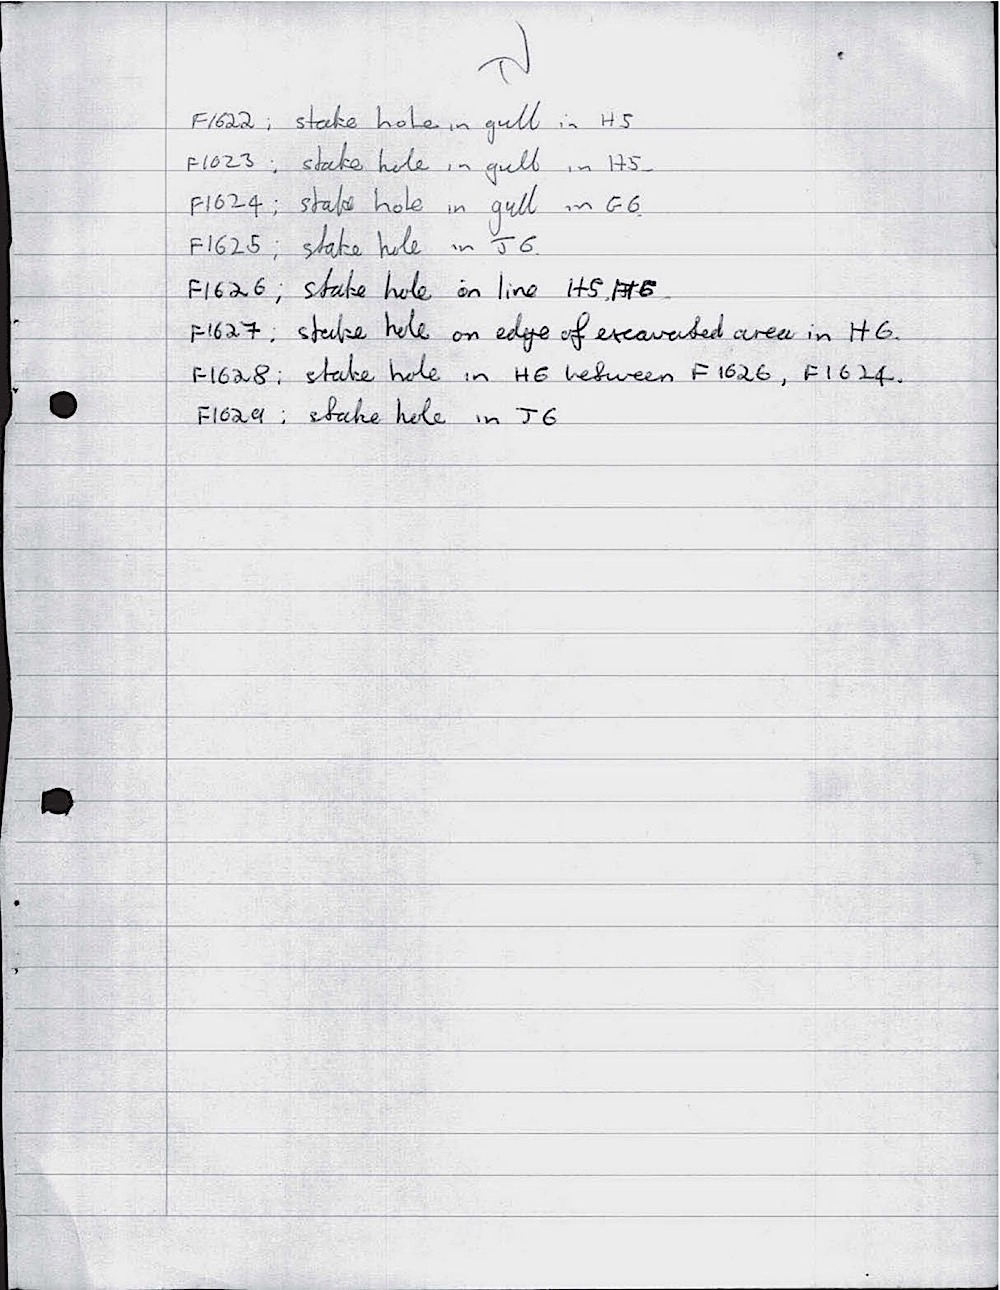 F1622; stake hole in gull in H5
F1623; stake hole in gull in H5
F1624; stake hole in gull in G6
F1625; stake hole in J6.
F1626; stake hole on line H5, H6
F1627; stake hole on edge of excavated area in H6.
F1628; stake hole in H6 between F1626, F1624.
F1629; stake hole in J6